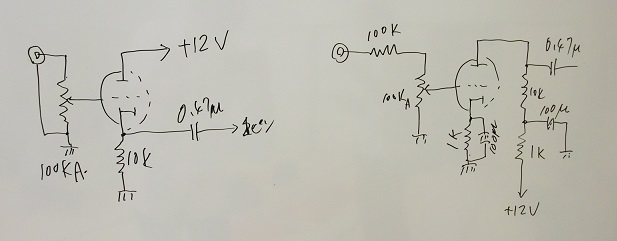 +12V
0.47µ
10K
100KA.
100K
100KA
1K
100µ
0.47µ
10K
100µ
1K
+12V